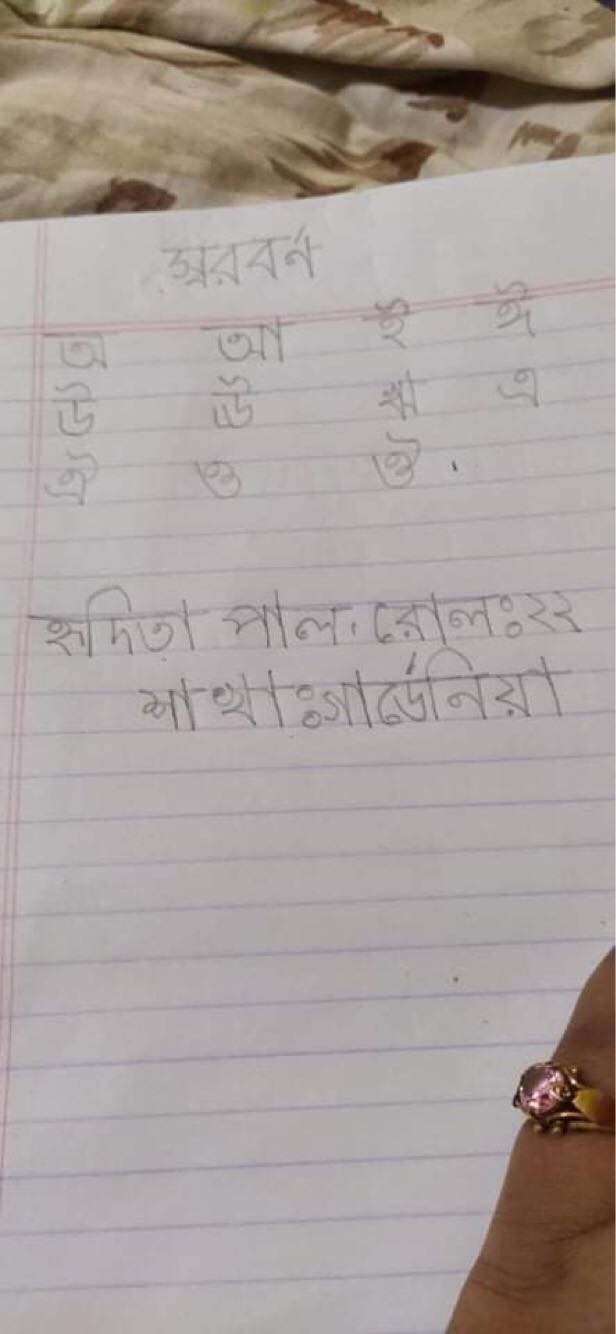 স্বরবর্ন
অ আ ই ঈ
উ ঊ ঋ এ
ঐ ও ঔ .
রুদিতা পাল. রোলঃ২২
শাখাঃগার্ডেনিয়া